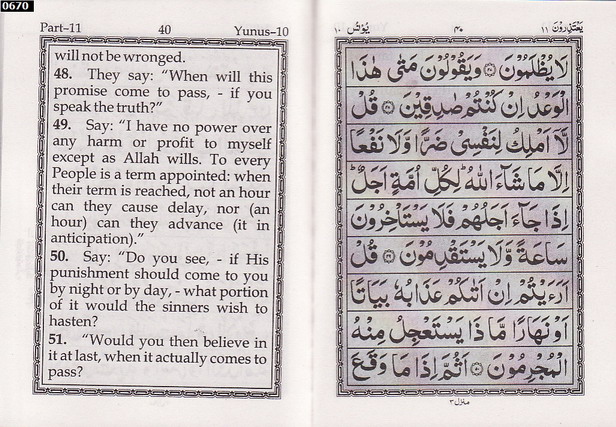 0670
Part-11 40 Yunus-10
will not be wronged.
48. They say: “When will this
promise come to pass, - if you
speak the truth?”
49. Say: “I have no power over
any harm or profit to myself
except as Allah wills. To every
People is a term appointed: when
their term is reached, not an hour
can they cause delay, nor (an
hour) can they advance (it in
anticipation).”
50. Say: “Do you see, - if His
punishment should come to you
by night or by day, - what portion
of it would the sinners wish to
hasten?
51. “Would you then believe in
it at last, when it actually comes to
pass?
یَعْتَذِرُوْنَ ۱۱ ۴۰ یُوْنُس ۱۰
لَا يُظْلَمُوْنَ ﴿۴۷﴾ وَيَقُوْلُوْنَ مَتٰى هٰذَا
الْوَعْدُ اِنْ كُنْتُمْ صٰدِقِيْنَ ﴿۴۸﴾ قُلْ
لَّاۤ اَمْلِكُ لِنَفْسِيْ ضَرًّا وَّلَا نَفْعًا
اِلَّا مَا شَآءَ اللّٰهُ ؕ لِكُلِّ اُمَّةٍ اَجَلٌ ؕ
اِذَا جَآءَ اَجَلُهُمْ فَلَا يَسْتَاْخِرُوْنَ
سَاعَةً وَّلَا يَسْتَقْدِمُوْنَ ﴿۴۹﴾ قُلْ
اَرَءَيْتُمْ اِنْ اَتٰىكُمْ عَذَابُهٗ بَيَاتًا
اَوْ نَهَارًا مَّا ذَا يَسْتَعْجِلُ مِنْهُ
الْمُجْرِمُوْنَ ﴿۵۰﴾ اَثُمَّ اِذَا مَا وَقَعَ
منزل ۳